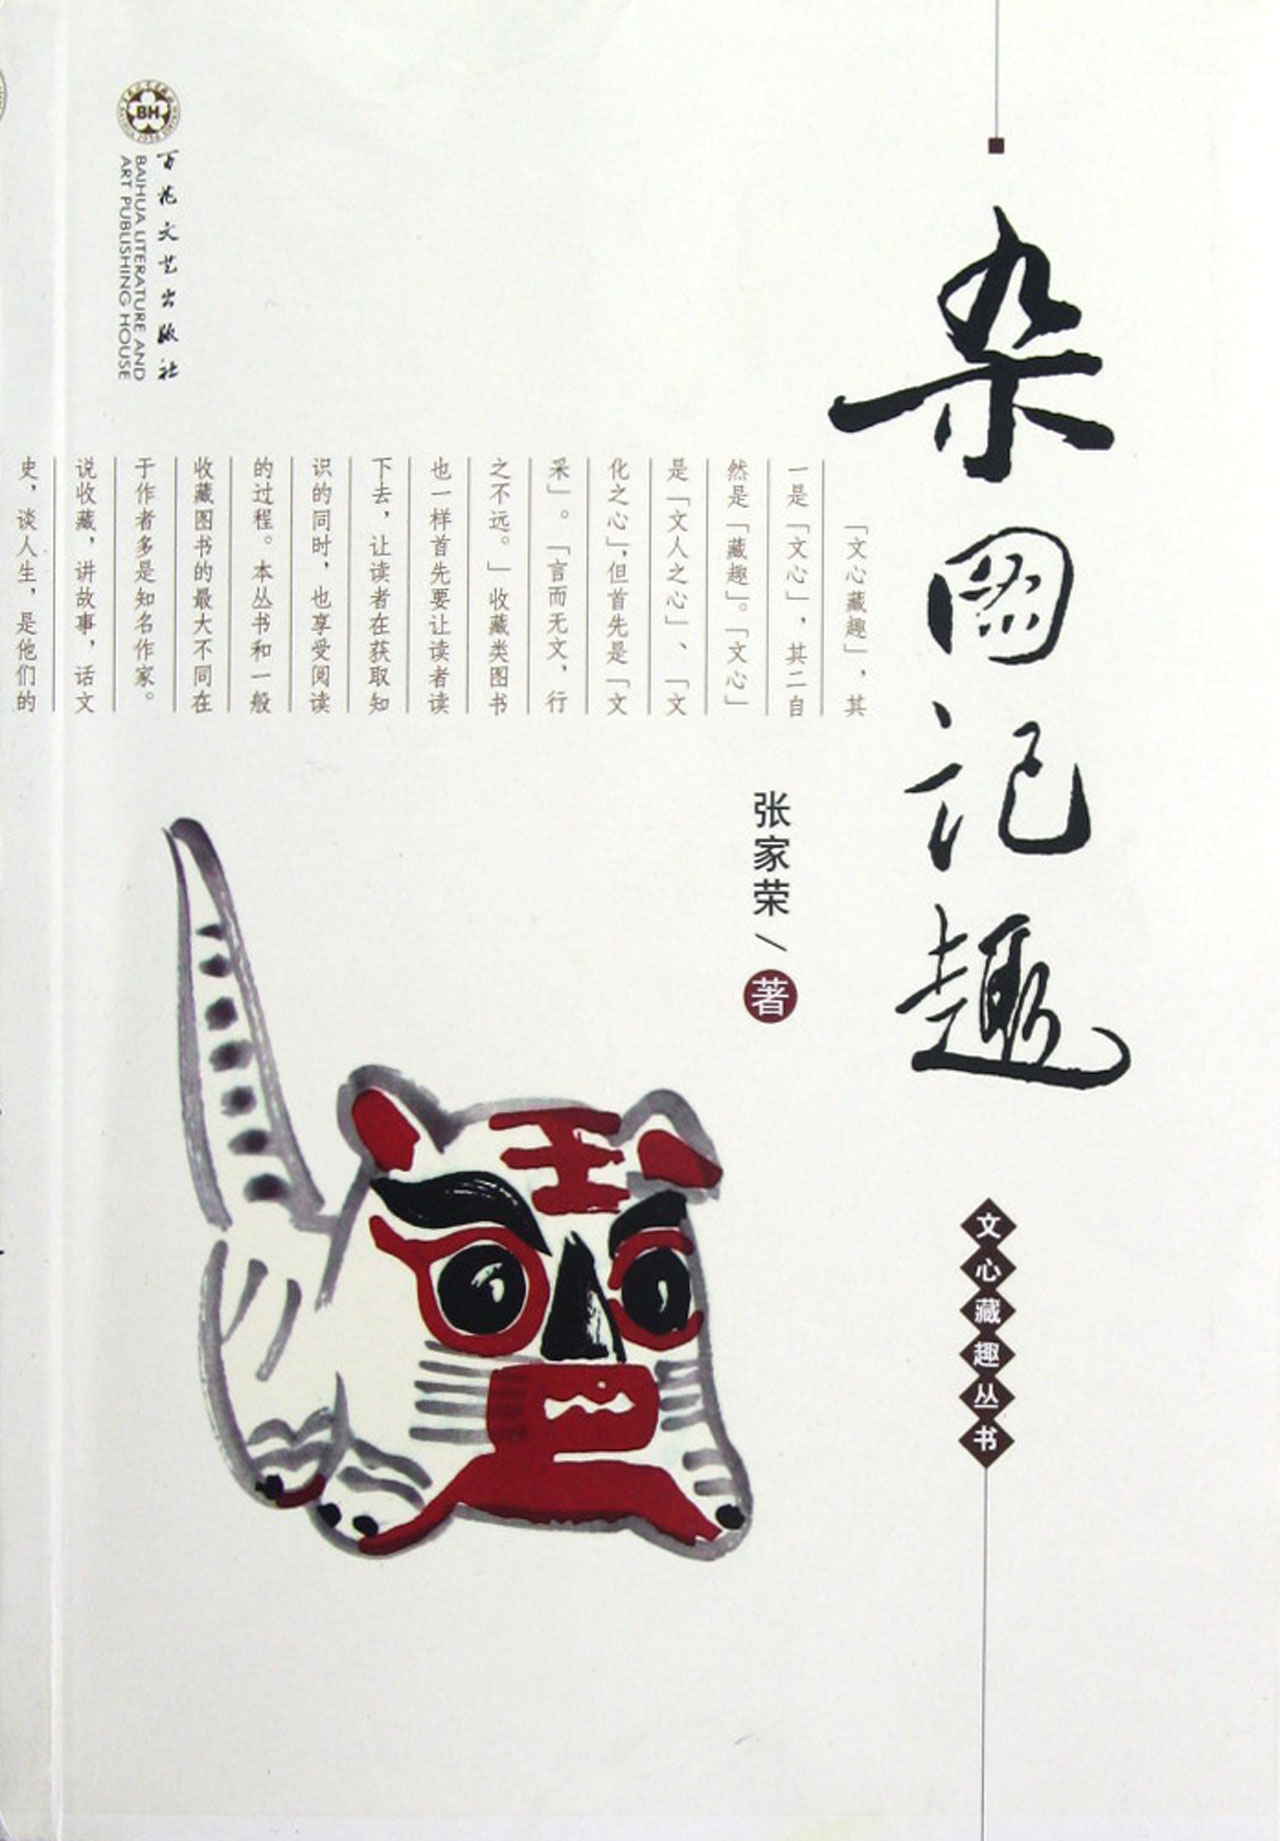 杂图记趣
文心藏趣丛书
「文心藏趣」，其
一是「文心」，其二自
然是「藏趣」。「文心」
是「文人之心」、「文
化之心」，但首先是「文
采」。「言而无文，行
之不远。」收藏类图书
也一样首先要让读者读
下去，让读者在获取知
识的同时，也享受阅读
的过程。本丛书和一般
收藏图书的最大不同在
于作者多是知名作家。
说收藏，讲故事，话文
史，谈人生，是他们的
张家荣/著
百花文艺出版社
BAIHUA LITERATURE AND
ART PUBLISHING HOUSE
BH
王